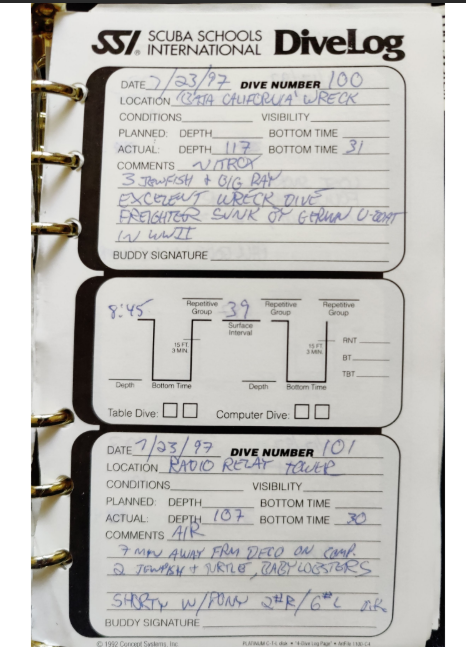 SSI SCUBA SCHOOLS INTERNATIONAL DiveLog
DATE 7/23/97 DIVE NUMBER 100
LOCATION "BAJA CALIFORNIA" WRECK
CONDITIONS VISIBILITY
PLANNED: DEPTH BOTTOM TIME
ACTUAL: DEPTH 117 BOTTOM TIME 31
COMMENTS NITROX
3 JEWFISH + BIG RAY
EXCELENT WRECK DIVE
FREIGHTER SUNK BY GERMAN U-BOAT
IN WWII
BUDDY SIGNATURE
8:45 Repetitive Group 39 Surface Interval Repetitive Group Repetitive Group
15 FT. 3 MIN. 15 FT. 3 MIN.
RNT
BT
TBT
Depth Bottom Time Depth Bottom Time
Table Dive: Computer Dive:
DATE 7/23/97 DIVE NUMBER 101
LOCATION RADIO RELAY TOWER
CONDITIONS VISIBILITY
PLANNED: DEPTH BOTTOM TIME
ACTUAL: DEPTH 107 BOTTOM TIME 30
COMMENTS AIR
7 MIN AWAY FRM DECO ON COMP.
2 JEWFISH + TURTLE, BABY LOBSTERS
SHORTY W/PONY 2#R/6#L
BUDDY SIGNATURE
© 1992 Concept Systems, Inc.